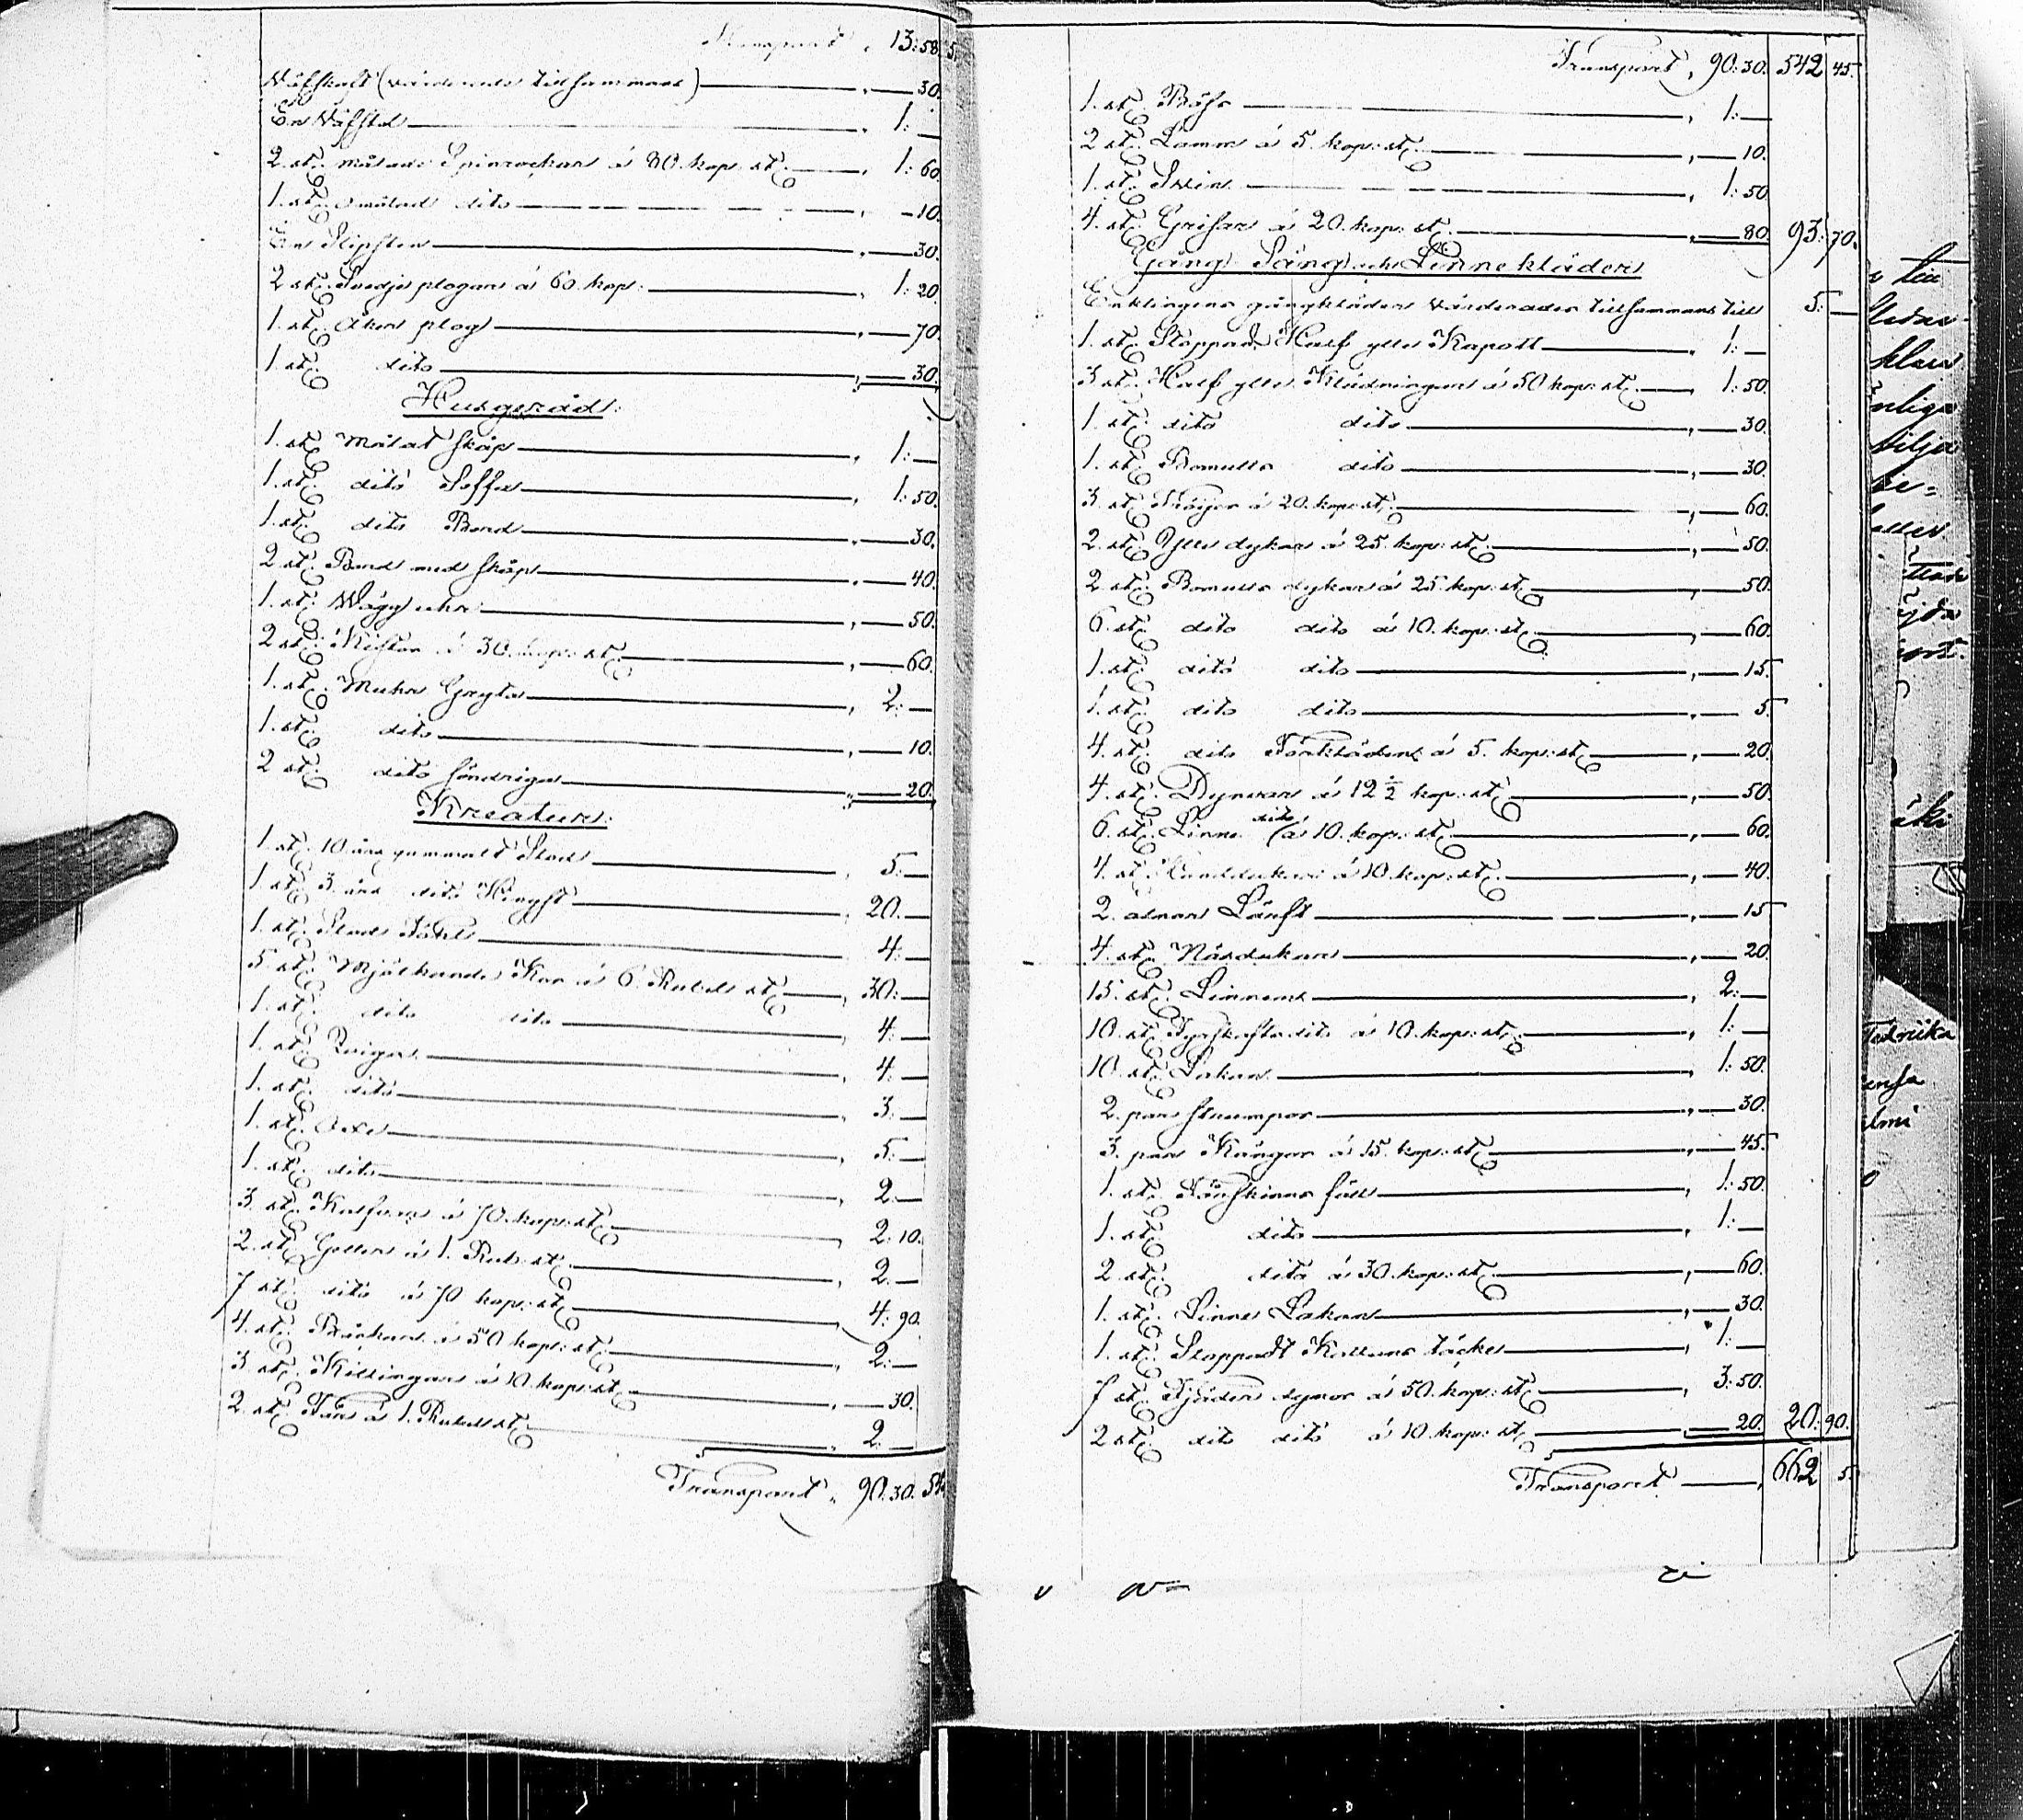 Transport „ 13:58
Wäfskält (värderade tillsammans) „ 30.
En Wäfstol „ 1: —
2 st: målade Spinrockar á 80. kop. st: „ 1: 60
1. st: omålad dito „ 10.
En Slipsten „ 30.
2 st: Svedje plogar á 60. kop: „ 1: 20
1. st: Åker plog „ 70.
1. st: dito „ 30.
Husgeråd:
1. st: Målat skåp „ 1: —
1. st: ditó Soffa „ 1: 50.
1. st: dito Bord „ 30.
2 st: Bord med skåp „ 40.
1. st: Vägg uhr „ 50.
2 st: Kistor á 30. kop: st: „ 60.
1. st: Muhr Gryta „ 2: —
1. st: dito „ 10.
2 st: dito söndriga „ 20.
Kreatur:
1. st: 10. åra gammalt Stod „ 5: —
1 st: 3. åra dito Hingst „ 20. —
1. st: Stod Fåhl „ 4: —
5. st: Mjölkande Kor á 6. Rubel st: „ 30: —
1. st: dito dito „ 4: —
1. st: Qviga „ 4: —
1. st: dito „ 3: —
1. st: Oxe „ 5: —
1. st: dito „ 2: —
3. st: Kalfvar á 70. kop: st: „ 2: 10.
2. st: Getter á 1. Rub: st: „ 2: —
7 st: dito á 70 kop: st: „ 4: 90.
4. st: Bäckar á 50 kop: st: „ 2: —
3. st: Killingar á 10. kop: st: „ 30.
2. st: Får á 1. Rubel st: „ 2: —
Transport „ 90. 30. 54
Transport „ 90: 30. 542 45.
1. st: Bässe „ 1: —
2 st: Lamm á 5. kop: st: „ 10.
1. st: Svin „ 1: 50
4. st: Grisar á 20. kop: st: „ 80. 93: 70.
Gång Säng och Linnekläder
Enklingens gångkläder värderades tillsammans till 5: —
1. st: Stoppad Half ylle Kapott „ 1: —
3 st: Half ylle Klädningar á 50 kop: st: „ 1: 50.
1. st: dito dito „ 30.
1. st: Bomulls dito „ 30.
3. st: Tröijor á 20. kop: st: „ 60.
2. st: Ylle dykar á 25. kop: st: „ 50.
2 st: Bomulls dykar á 25. kop: st: „ 50.
6. st: dito dito á 10. kop: st: „ 60.
1. st: dito dito „ 15
1. st: dito dito „ 5
4. st: dito Förkläden á 5. kop: st: „ 20.
4. st: Dynvar á 12 ½ kop: st: „ 50.
6. st: Linne dito á 10. kop: st: „ 60.
4. st: Handdukar á 10. kop: st: „ 40.
2. alnar Lärft „ 15
4. st: Näsdukar „ 20.
15. st: Linnens „ 2: —
10. st: Fyrskafta dito á 10. kop: st: „ 1: —
10. st: Lakan „ 1: 50.
2. par strumpor „ 30.
3. par Kängor á 15. kop: st: „ 45
1. st: Fårskinns fäll „ 1: 50.
1. st: dito „ 1: —
2 st: dito á 30. kop: st: „ 60.
1. st: Linne Lakan „ 30.
1. st: Stoppadt Kattuns täcke „ 1: —
7 st: Fjäder dynor á 50. kop: st: „ 3: 50.
2 st: dito dito á 10. kop: st: „ 20. 20. 90.
Transport „ 662 5.